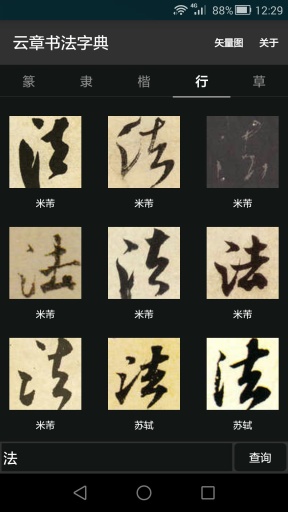 4G 88% 12:29
云章书法字典 矢量图 关于
篆 隶 楷 行 草
法 法
米芾 米芾 米芾
法 法 法
米芾 米芾 米芾
法 法 法
米芾 苏轼 苏轼
法 查询